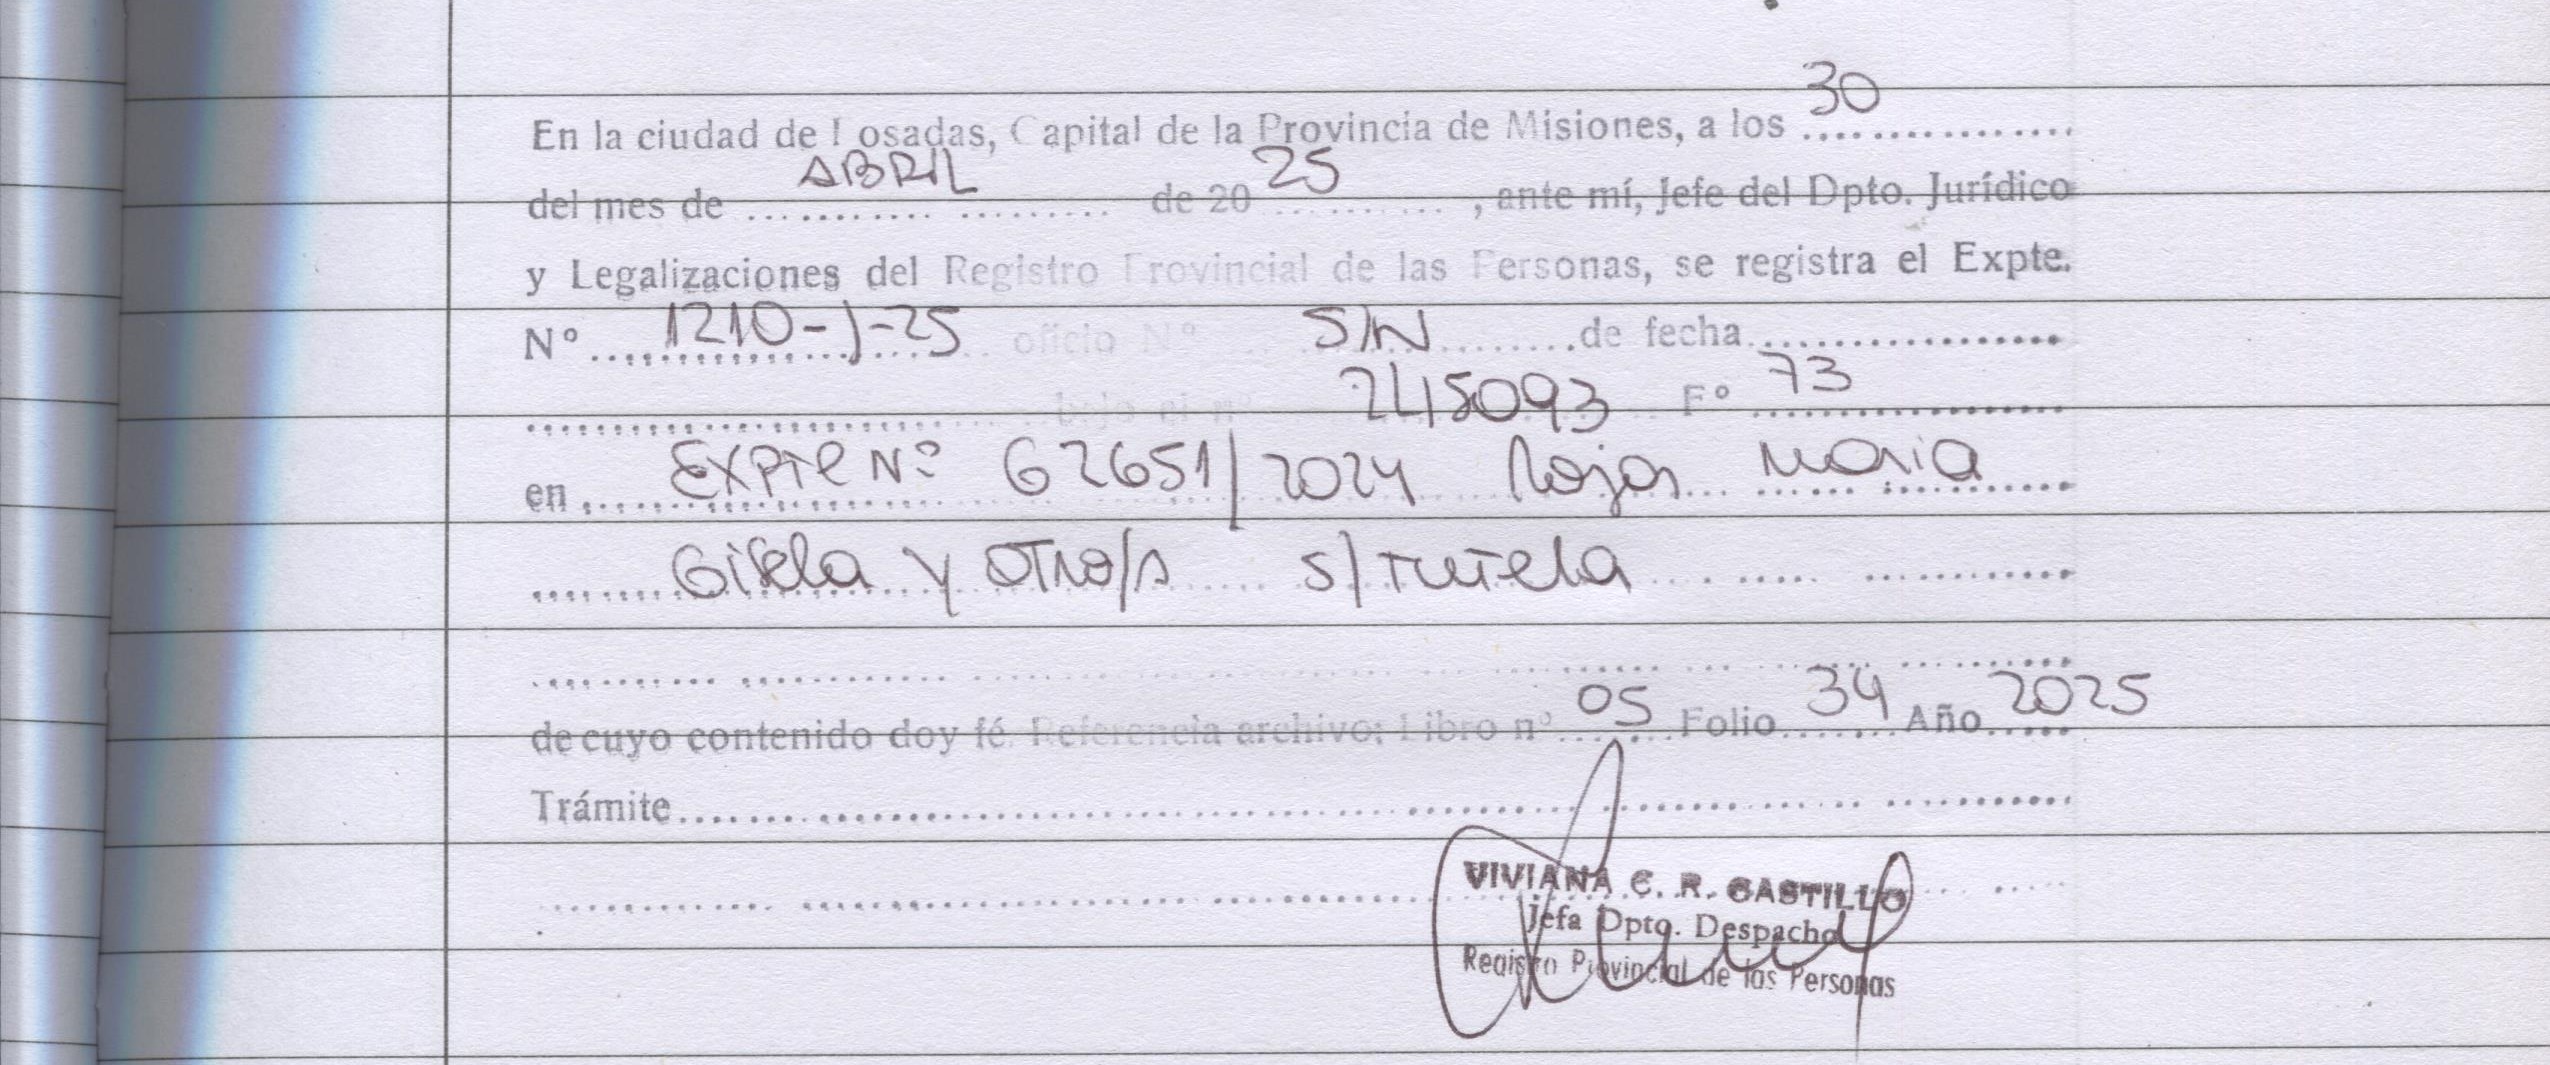 En la ciudad de Posadas, Capital de la Provincia de Misiones, a los 30
del mes de ABRIL de 20 25, ante mí, Jefe del Dpto. Jurídico
y Legalizaciones del Registro Provincial de las Personas, se registra el Expte.
Nº 1210-J-25 oficio Nº S/N de fecha
bajo el nº 245093 Fº 73
en Expte Nº 62651/2024 Rojas Maria
Gisela y otro/s s/ tutela
de cuyo contenido doy fé. Referencia archivo: Libro nº 05 Folio 34 Año 2025
Trámite
VIVIANA C. R. CASTILLO
Jefa Dpto. Despacho
Registro Provincial de las Personas